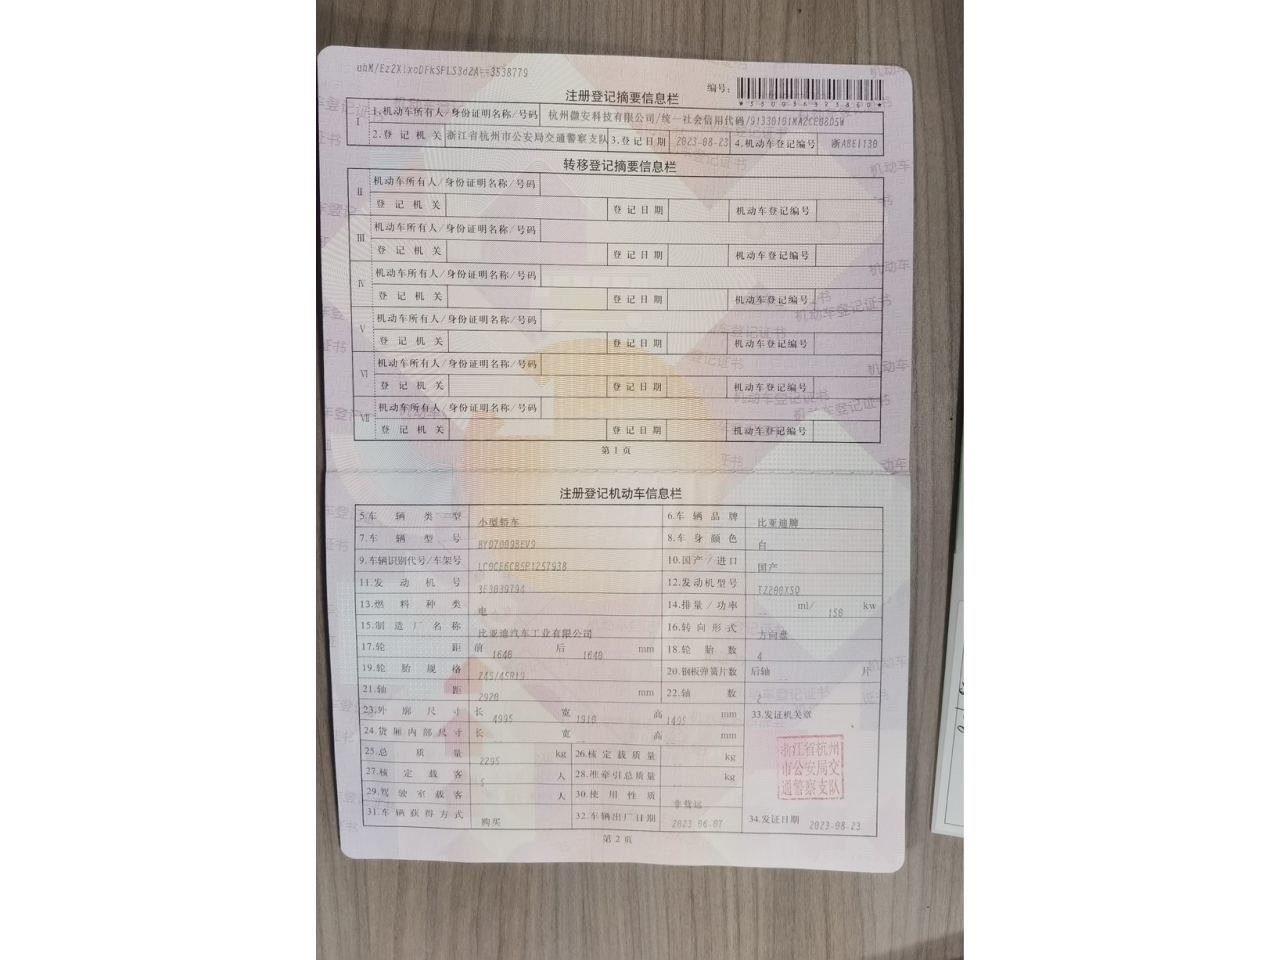 uhM/Ez2XixoDFkSPLS3d2A==3538779
编号:
注册登记摘要信息栏
I 1.机动车所有人/身份证明名称/号码 杭州徽安科技有限公司/统一社会信用代码/91330101MA2CE08D5W
2.登记机关 浙江省杭州市公安局交通警察支队 3.登记日期 2023-08-23 4.机动车登记编号 浙ABE1130
转移登记摘要信息栏
II 机动车所有人/身份证明名称/号码
登记机关 登记日期 机动车登记编号
III 机动车所有人/身份证明名称/号码
登记机关 登记日期 机动车登记编号
IV 机动车所有人/身份证明名称/号码
登记机关 登记日期 机动车登记编号
V 机动车所有人/身份证明名称/号码
登记机关 登记日期 机动车登记编号
VI 机动车所有人/身份证明名称/号码
登记机关 登记日期 机动车登记编号
VII 机动车所有人/身份证明名称/号码
登记机关 登记日期 机动车登记编号
第1页
注册登记机动车信息栏
5.车辆类型 小型轿车 6.车辆品牌 比亚迪牌
7.车辆型号 BYD7009BEV9 8.车身颜色 白
9.车辆识别代号/车架号 LC0CE6CB5P1257938 10.国产/进口 国产
11.发动机号 3E3039794 12.发动机型号 TZ200XSQ
13.燃料种类 电 14.排量/功率 -- ml/ 150 kw
15.制造厂名称 比亚迪汽车工业有限公司 16.转向形式 方向盘
17.轮距 前 1640 后 1640 mm 18.轮胎数 4
19.轮胎规格 245/45R19 20.钢板弹簧片数 后轴 片
21.轴距 2920 mm 22.轴数 2
23.外廓尺寸 长 4995 宽 1910 高 1495 mm 33.发证机关章
24.货厢内部尺寸 长 宽 高 mm
25.总质量 2295 kg 26.核定载质量 kg
27.核定载客 5 人 28.准牵引总质量 kg
29.驾驶室载客 人 30.使用性质 非营运
31.车辆获得方式 购买 32.车辆出厂日期 2023-06-07 34.发证日期 2023-08-23
浙江省杭州
市公安局交
通警察支队
第2页